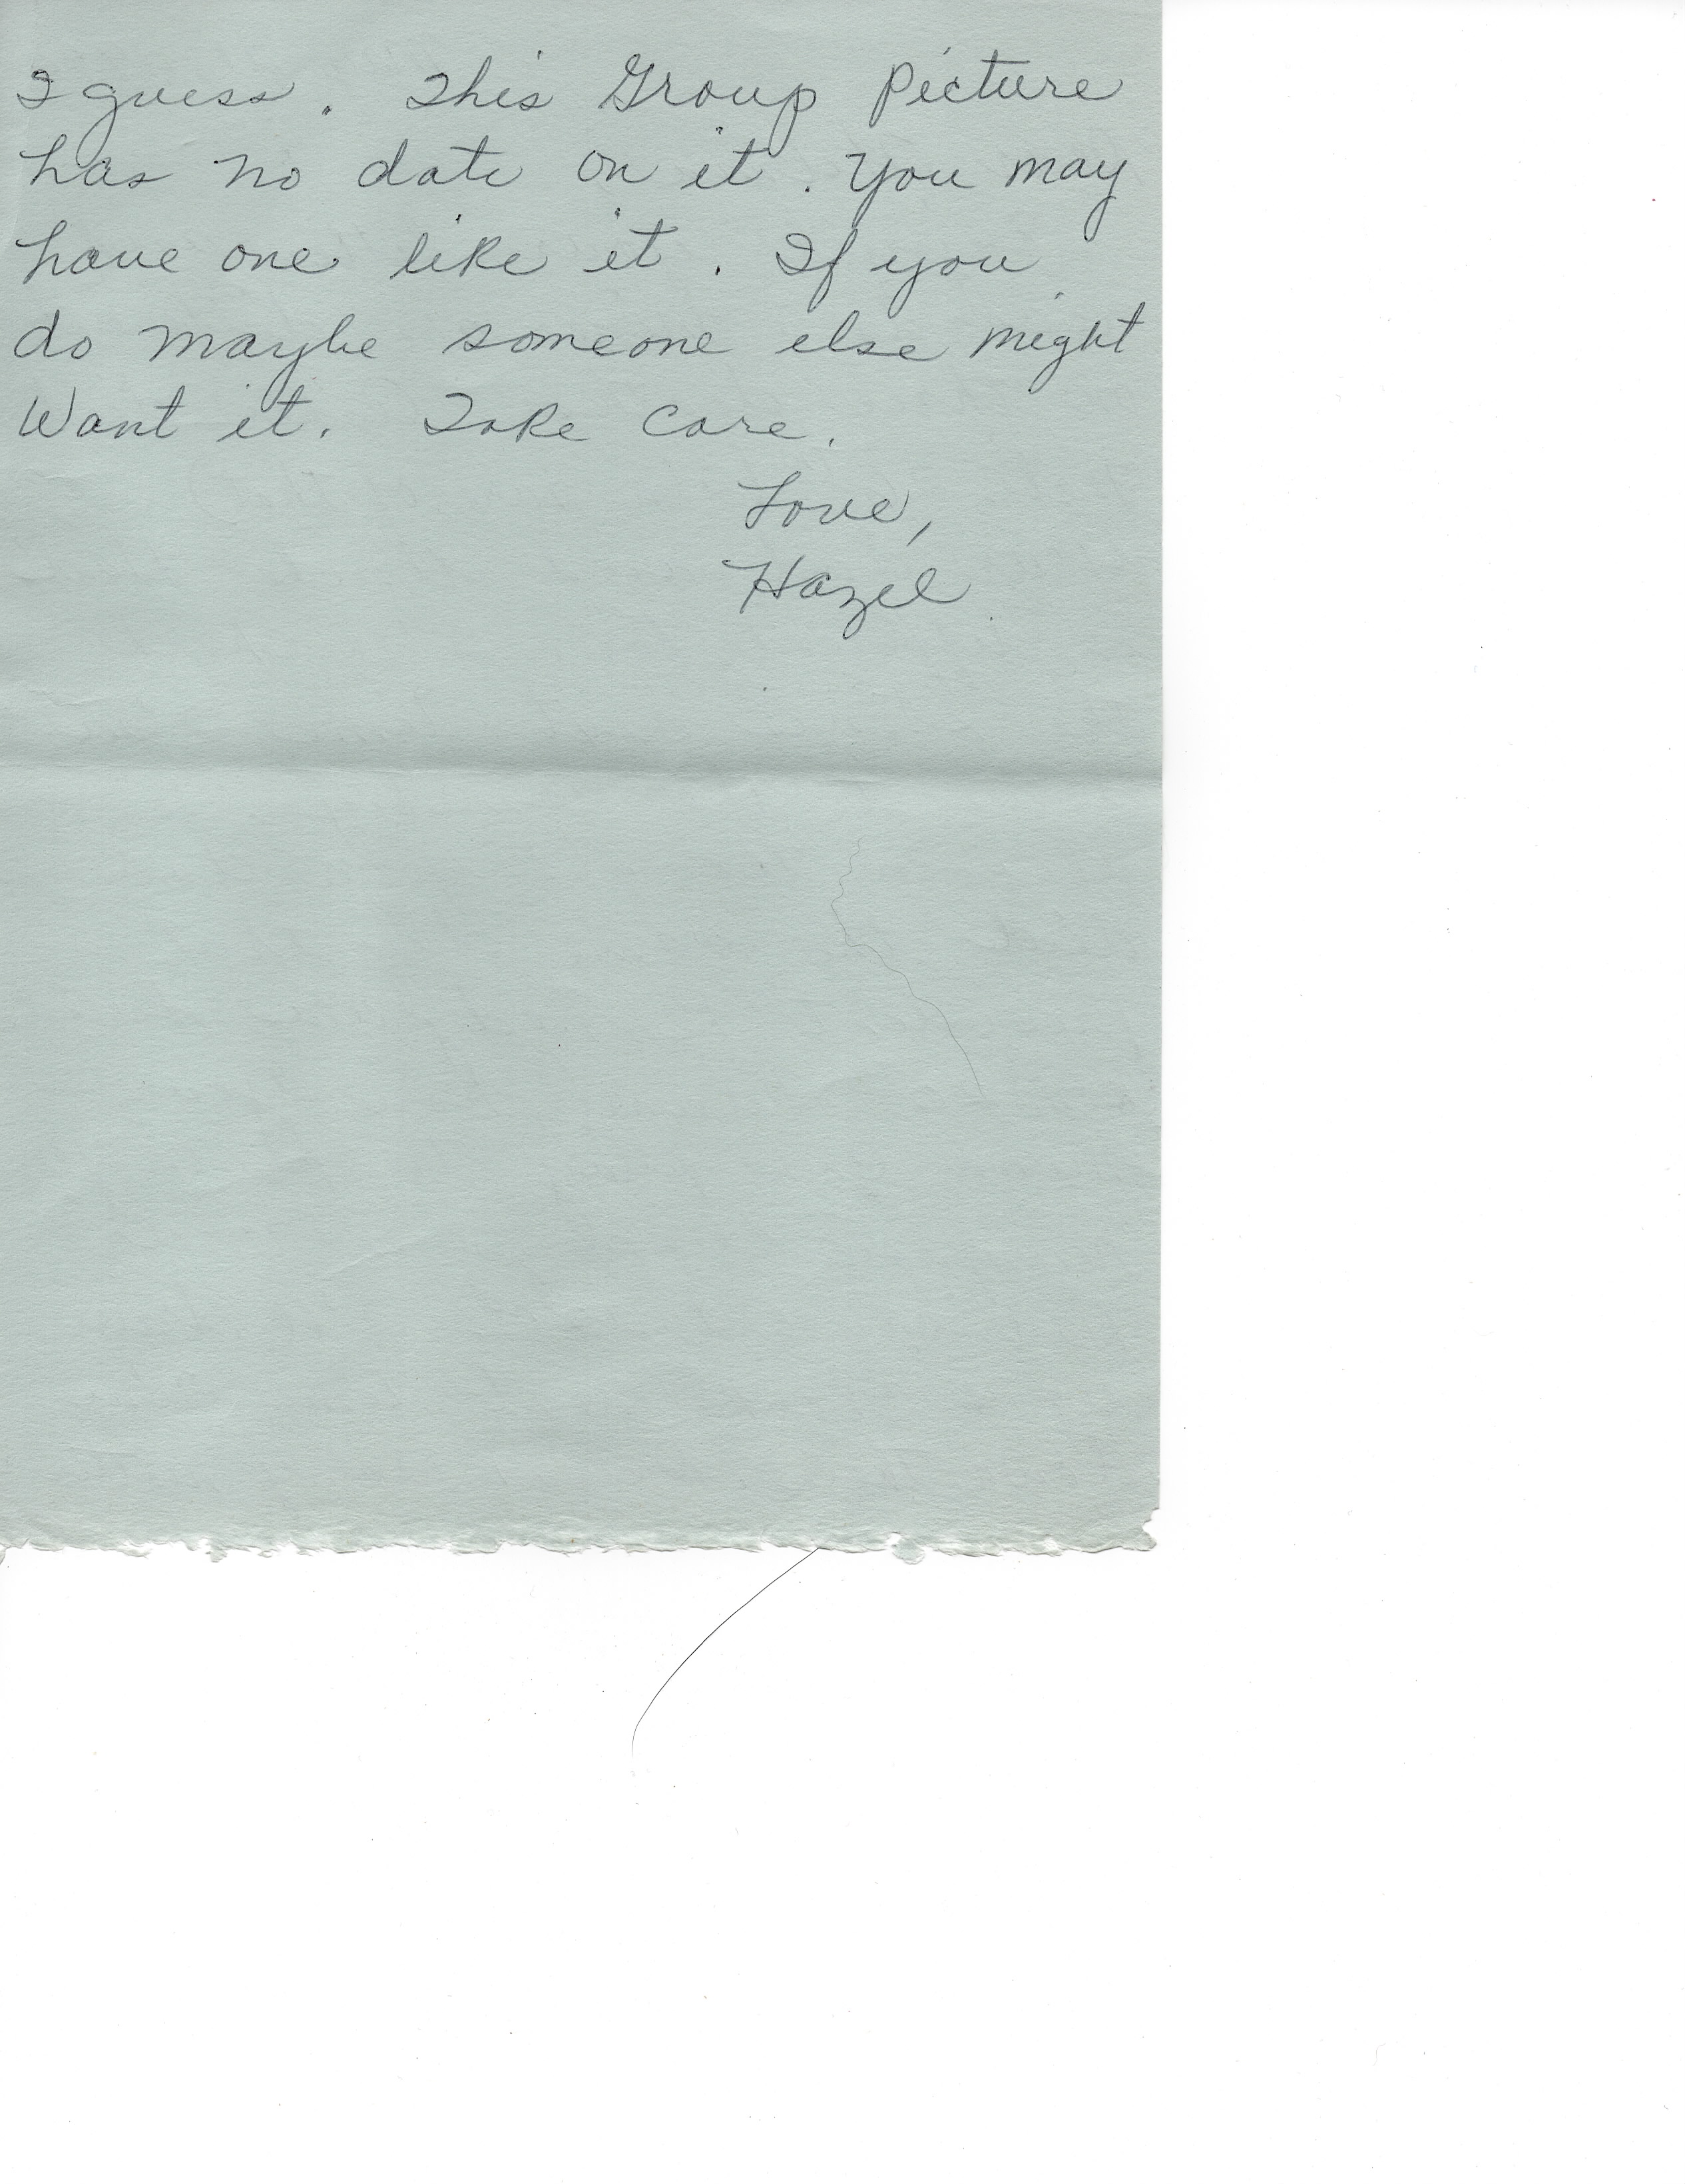 I guess. This Group Picture
has no date on it. You may
have one like it. If you
do maybe someone else might
Want it. Take Care.
Love,
Hazel.